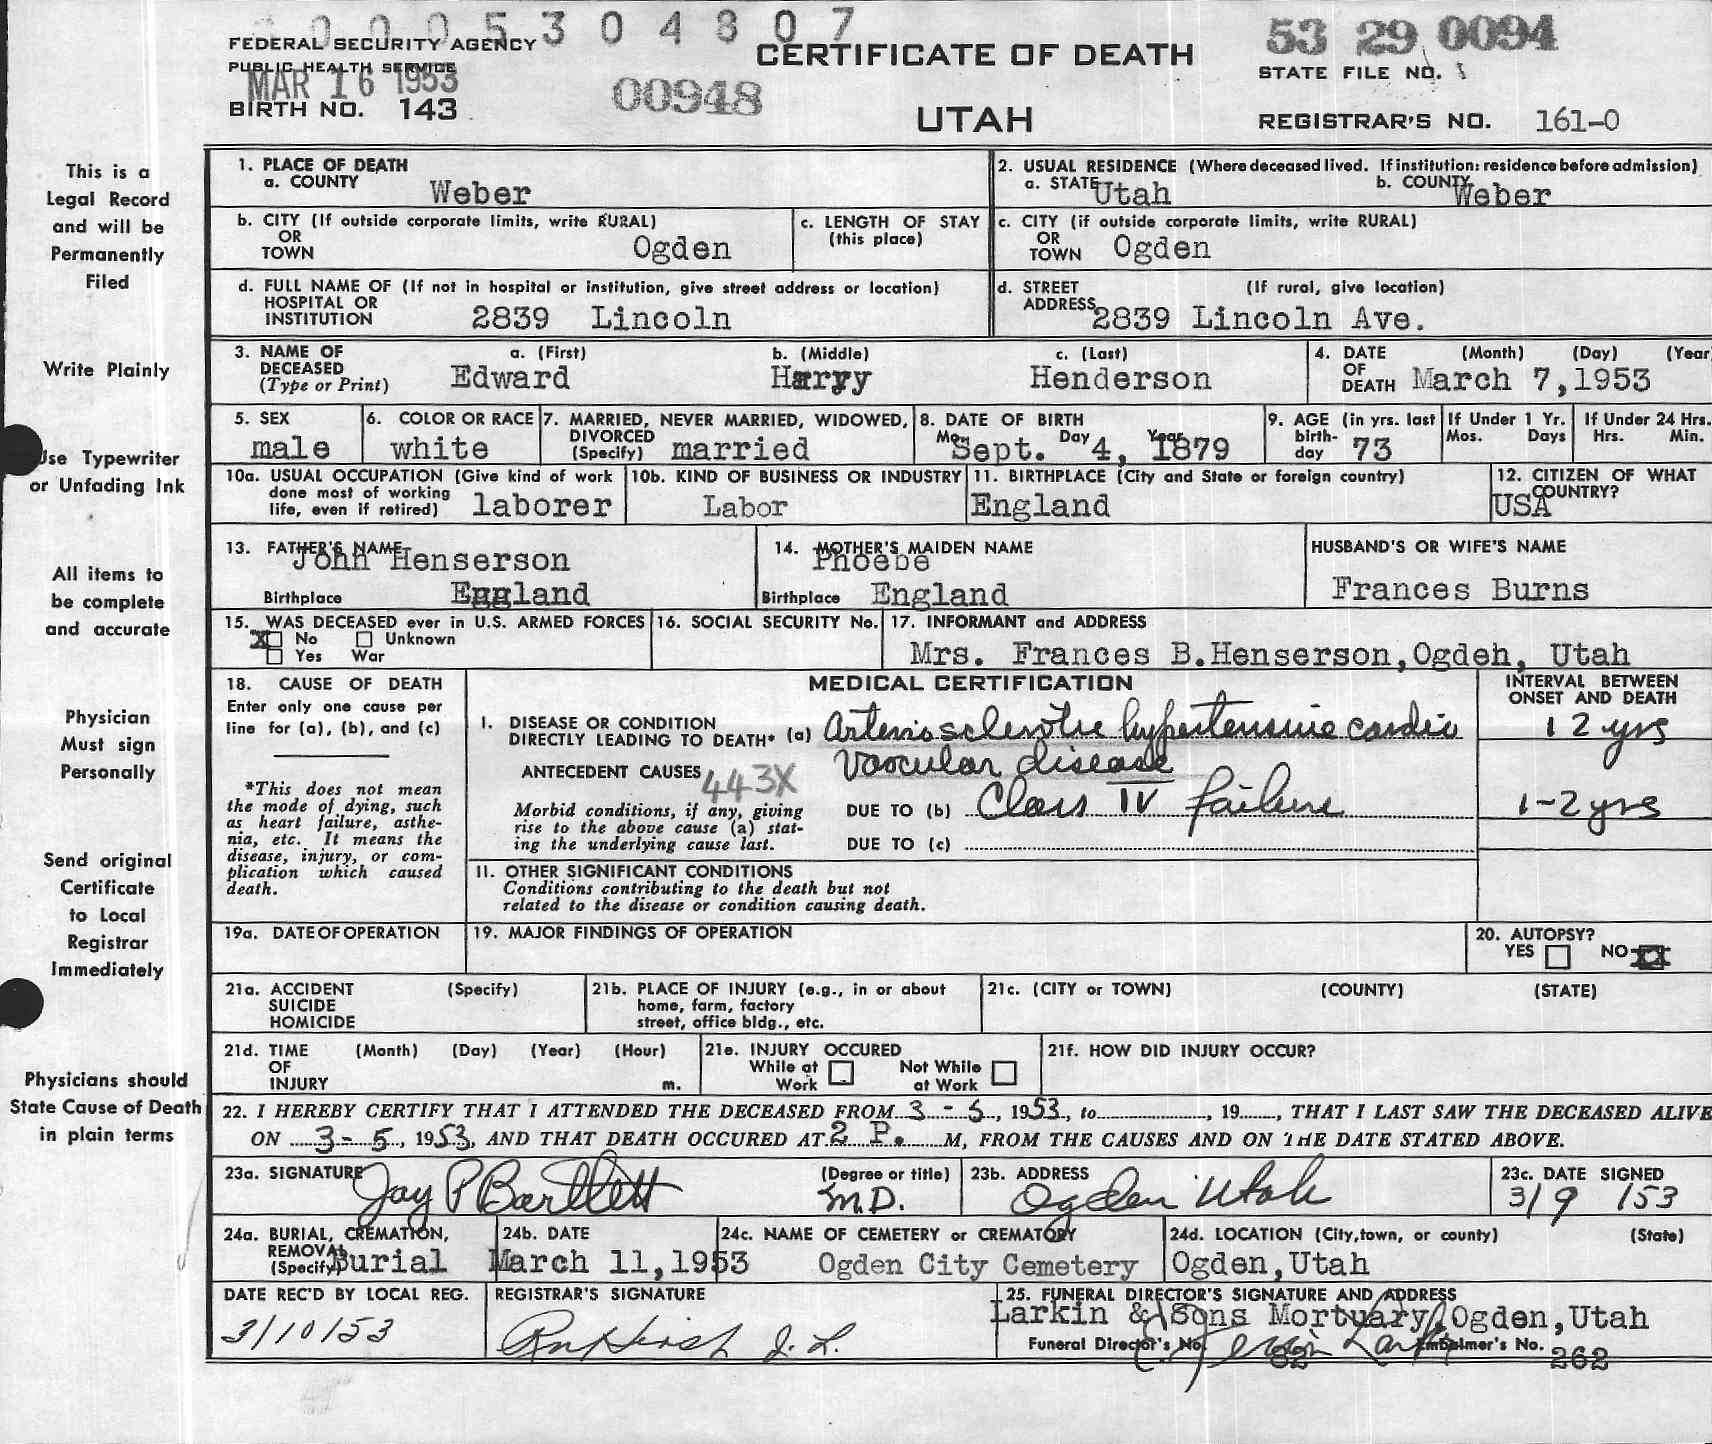 0 0 0 5 3 0 4 8 0 7
FEDERAL SECURITY AGENCY
PUBLIC HEALTH SERVICE
MAR 16 1953
BIRTH NO. 143
00948
CERTIFICATE OF DEATH
UTAH
53 29 0094
STATE FILE NO.
REGISTRAR'S NO. 161-0
This is a
Legal Record
and will be
Permanently
Filed
Write Plainly
Use Typewriter
or Unfading Ink
All items to
be complete
and accurate
Physician
Must sign
Personally
Send original
Certificate
to Local
Registrar
Immediately
Physicians should
State Cause of Death
in plain terms
1. PLACE OF DEATH
a. COUNTY Weber
2. USUAL RESIDENCE (Where deceased lived. If institution: residence before admission)
a. STATE Utah b. COUNTY Weber
b. CITY (If outside corporate limits, write RURAL)
OR
TOWN Ogden
c. LENGTH OF STAY
(this place)
c. CITY (if outside corporate limits, write RURAL)
OR
TOWN Ogden
d. FULL NAME OF (If not in hospital or institution, give street address or location)
HOSPITAL OR
INSTITUTION 2839 Lincoln
d. STREET (If rural, give location)
ADDRESS 2839 Lincoln Ave.
3. NAME OF
DECEASED
(Type or Print)
a. (First) b. (Middle) c. (Last)
Edward Harry Henderson
4. DATE (Month) (Day) (Year
OF
DEATH March 7,1953
5. SEX
male
6. COLOR OR RACE
white
7. MARRIED, NEVER MARRIED, WIDOWED,
DIVORCED
(Specify) married
8. DATE OF BIRTH
Mo. Day Year
Sept. 4, 1879
9. AGE (in yrs. last
birth-
day 73
If Under 1 Yr.
Mos. Days
If Under 24 Hrs.
Hrs. Min.
10a. USUAL OCCUPATION (Give kind of work
done most of working
life, even if retired) laborer
10b. KIND OF BUSINESS OR INDUSTRY
Labor
11. BIRTHPLACE (City and State or foreign country)
England
12. CITIZEN OF WHAT
COUNTRY?
USA
13. FATHER'S NAME
John Henserson
Birthplace England
14. MOTHER'S MAIDEN NAME
Phoebe
Birthplace England
HUSBAND'S OR WIFE'S NAME
Frances Burns
15. WAS DECEASED ever in U.S. ARMED FORCES
X No Unknown
Yes War
16. SOCIAL SECURITY No.
17. INFORMANT and ADDRESS
Mrs. Frances B.Henserson,Ogdeh, Utah
18. CAUSE OF DEATH
Enter only one cause per
line for (a), (b), and (c)
*This does not mean
the mode of dying, such
as heart failure, asthe-
nia, etc. It means the
disease, injury, or com-
plication which caused
death.
MEDICAL CERTIFICATION
INTERVAL BETWEEN
ONSET AND DEATH
I. DISEASE OR CONDITION
DIRECTLY LEADING TO DEATH* (a) Arteriosclerotic hypertensive cardio 12 yrs
vascular disease
ANTECEDENT CAUSES 443X
Morbid conditions, if any, giving
rise to the above cause (a) stat-
ing the underlying cause last.
DUE TO (b) Class IV failure 1-2 yrs
DUE TO (c)
II. OTHER SIGNIFICANT CONDITIONS
Conditions contributing to the death but not
related to the disease or condition causing death.
19a. DATE OF OPERATION
19. MAJOR FINDINGS OF OPERATION
20. AUTOPSY?
YES NO XX
21a. ACCIDENT (Specify)
SUICIDE
HOMICIDE
21b. PLACE OF INJURY (e.g., in or about
home, farm, factory
street, office bldg., etc.
21c. (CITY or TOWN) (COUNTY) (STATE)
21d. TIME (Month) (Day) (Year) (Hour)
OF
INJURY m.
21e. INJURY OCCURED
While at
Work
Not While
at Work
21f. HOW DID INJURY OCCUR?
22. I HEREBY CERTIFY THAT I ATTENDED THE DECEASED FROM 3 - 5, 1953, to , 19 , THAT I LAST SAW THE DECEASED ALIVE
ON 3-5, 1953, AND THAT DEATH OCCURED AT 2 P. M, FROM THE CAUSES AND ON THE DATE STATED ABOVE.
23a. SIGNATURE (Degree or title)
Jay P Bartlett M.D.
23b. ADDRESS
Ogden Utah
23c. DATE SIGNED
3/9 /53
24a. BURIAL, CREMATION,
REMOVAL
(Specify) Burial
24b. DATE
March 11,1953
24c. NAME OF CEMETERY or CREMATORY
Ogden City Cemetery
24d. LOCATION (City,town, or county) (State)
Ogden,Utah
DATE REC'D BY LOCAL REG.
3/10/53
REGISTRAR'S SIGNATURE
25. FUNERAL DIRECTOR'S SIGNATURE AND ADDRESS
Larkin & Sons Mortuary,Ogden,Utah
Funeral Director's No. 82 Embalmer's No. 262